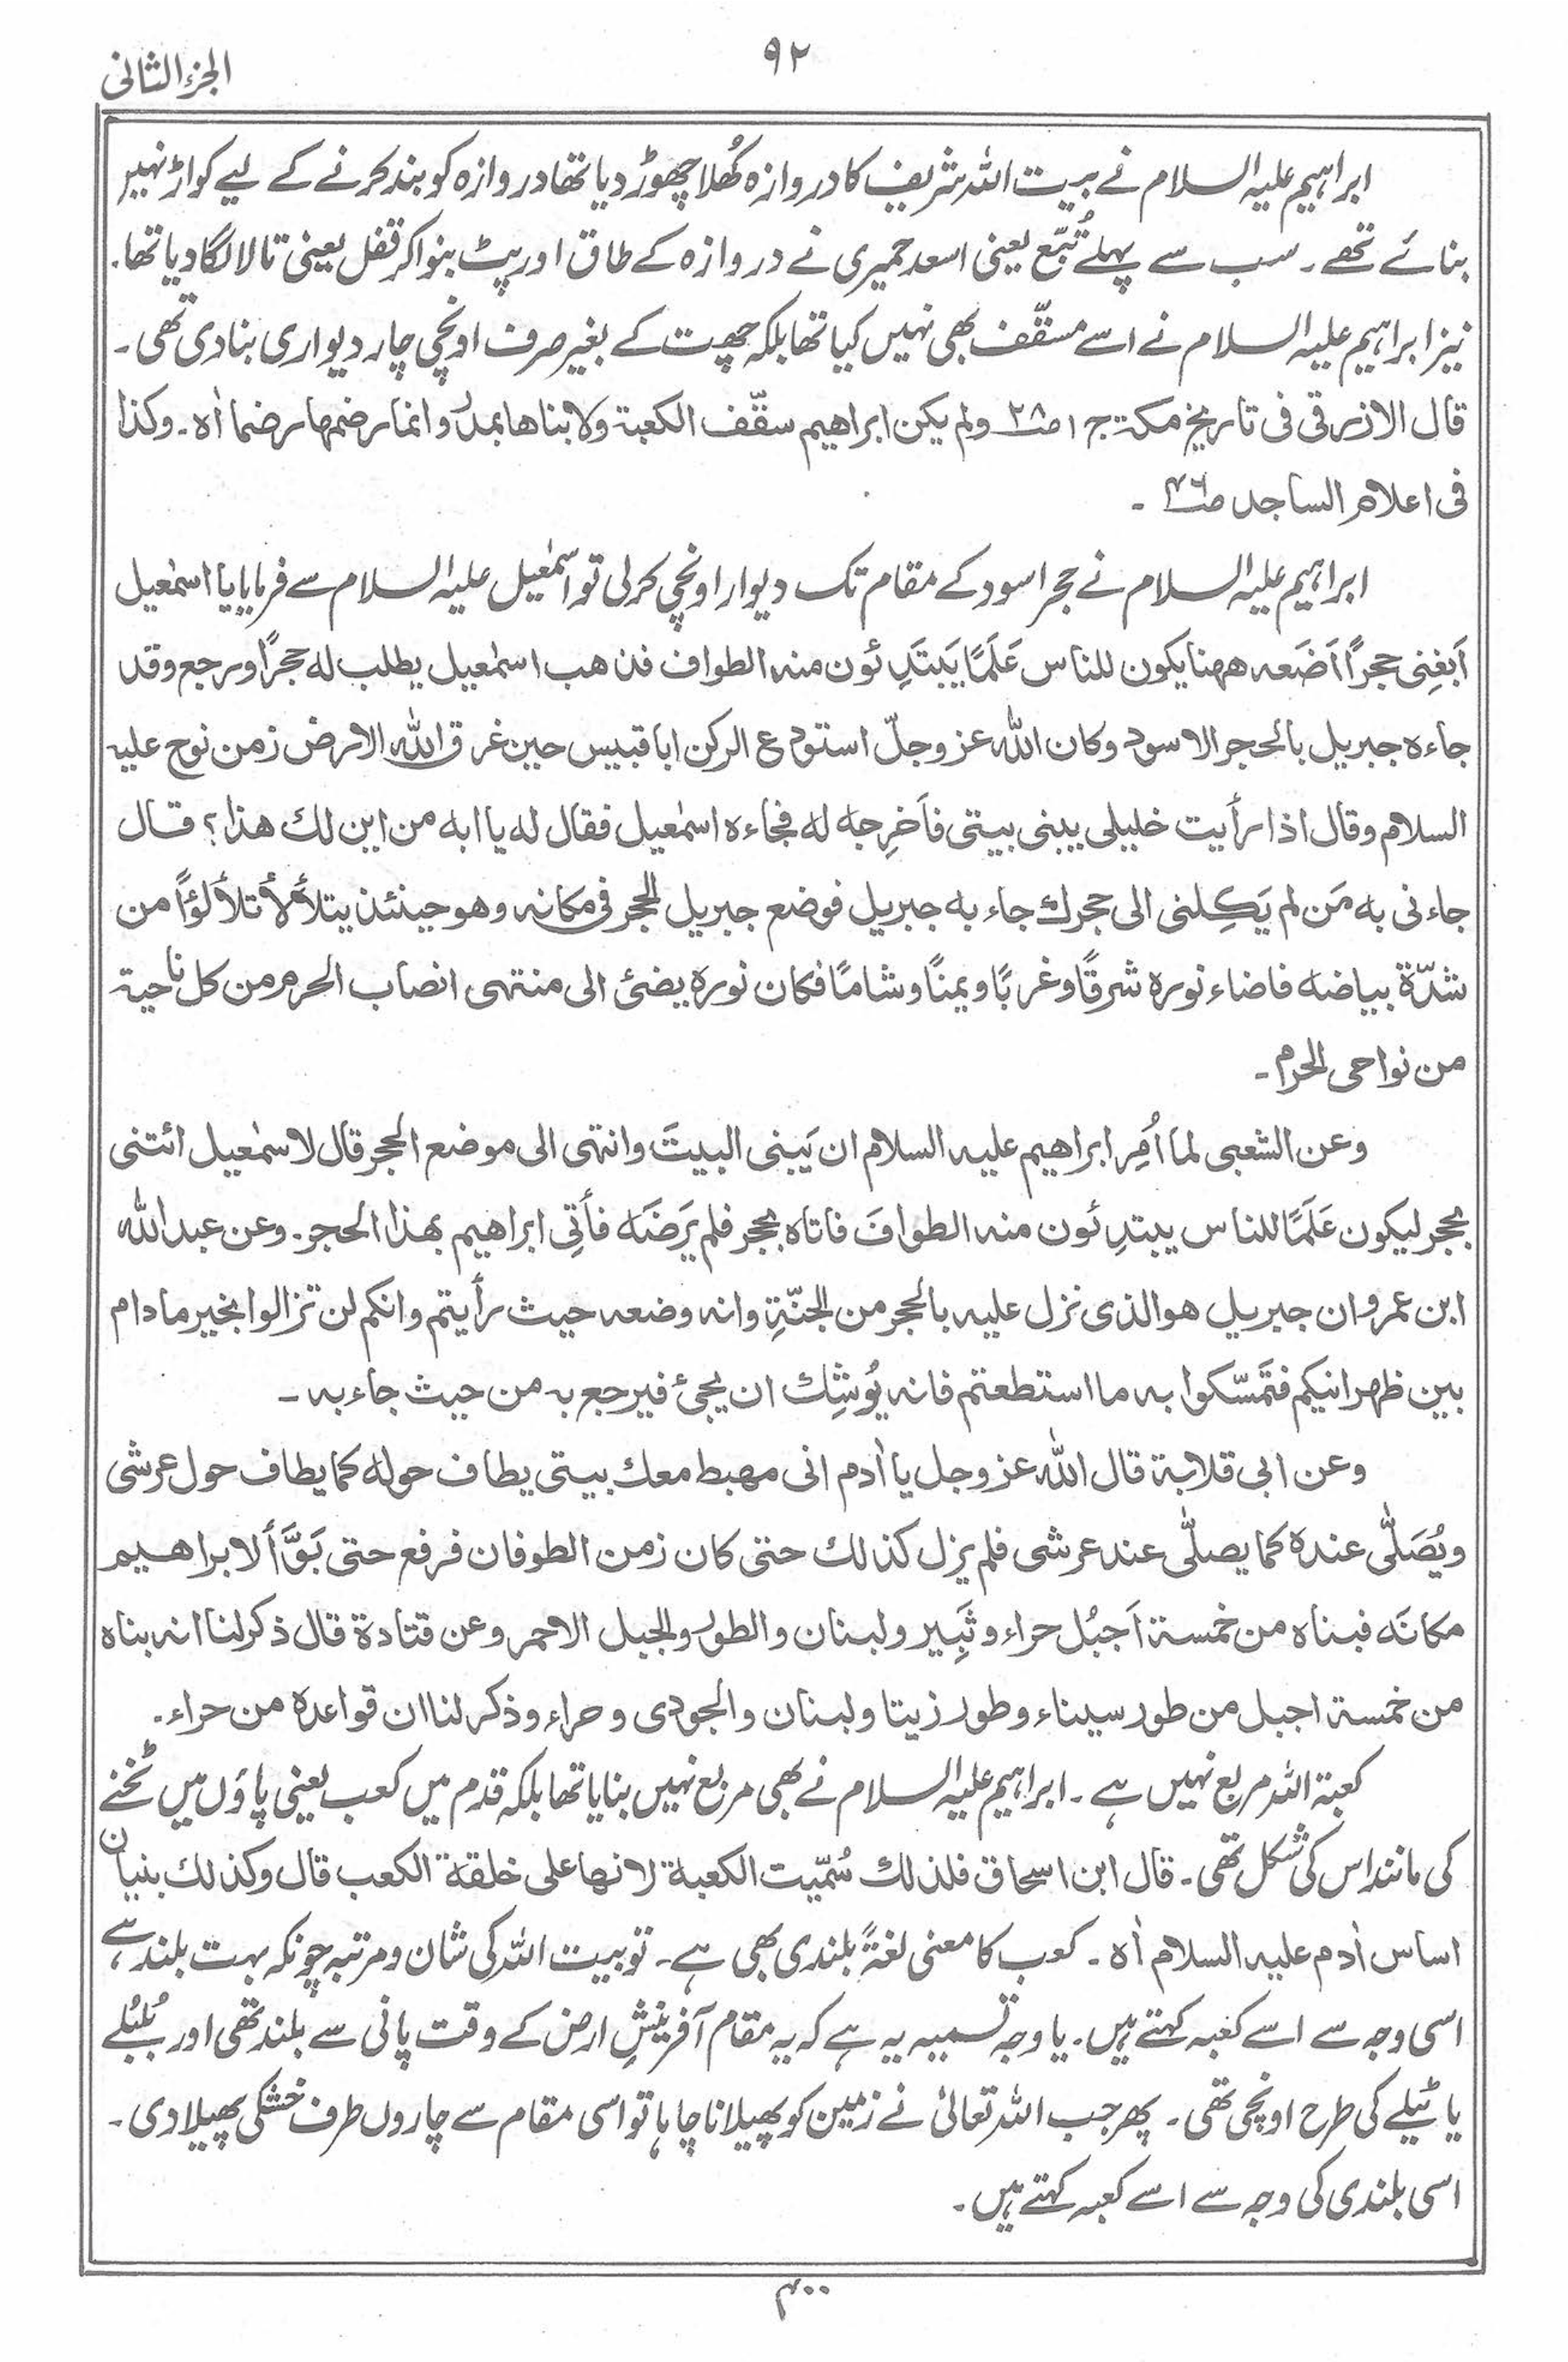 ۹۲
الجزء الثانی
ابراہیم علیہ السلام نے بیت اللہ شریف کا دروازہ کُھلا چھوڑ دیا تھا دروازہ کو بند کرنے کے لیے کواڑ نہیں
بنائے تھے ۔ سب سے پہلے تُبّع یعنی اسعد حمیری نے دروازہ کے طاق اور پٹ بنوا کر قفل یعنی تالا لگا دیا تھا۔
نیز ابراہیم علیہ السلام نے اسے مسقّف بھی نہیں کیا تھا بلکہ چھت کے بغیر صرف اونچی چار دیواری بنا دی تھی ۔
قال الازرقی فی تاریخ مکۃ ج ۱ ص۲۸ ولم یکن ابراھیم سقّف الکعبۃ ولا بناھا بمدر وانما رضمھا رضما اٰہ ۔ وکذا
فی اعلام الساجد ص۴۶ ۔
ابراہیم علیہ السلام نے حجر اسود کے مقام تک دیوار اونچی کر لی تو اسمٰعیل علیہ السلام سے فرمایا یا اسمٰعیل
اَبغِنی حجرًا اَضَعہ ھھنا یکون للناس عَلَمًا یَبتَدِئون منہ الطواف فذھب اسمٰعیل یطلب لہ حجرًا ورجع وقد
جاءہ جبریل بالحجر الاسود وکان اللّٰہ عز وجلّ استودع الرکن اباقبیس حین غرق اللّٰہ الارض زمن نوح علیہ
السلام وقال اذا رأیت خلیلی یبنی بیتی فاَخرِجہ لہ فجاءہ اسمٰعیل فقال لہ یا ابہ من این لك ھذا؟ قال
جاءنی بہ مَن لم یَکِلنی الی حجرك جاء بہ جبریل فوضع جبریل الحجر فی مکانہ وھو حینئذ یتلألأ تلألؤًا من
شدّۃ بیاضہ فاضاء نورہ شرقًا وغربًا ویمنًا وشامًا فکان نورہ یضئ الی منتھی انصاب الحرم من کل ناحیۃ
من نواحی الحرم ۔
وعن الشعبی لما اُمِر ابراھیم علیہ السلام ان یَبنی البیتَ وانتھی الی موضع الحجر قال لاسمٰعیل ائتنی
بحجر لیکون عَلَمًا للناس یبتدِئون منہ الطوافَ فاتاہ بحجر فلم یَرضَہ فأُتِی ابراھیم بھذا الحجر ۔ وعن عبد اللّٰہ
ابن عمرو ان جبریل ھو الذی نزل علیہ بالحجر من الجنّۃِ وانہ وضعہ حیث رأیتم وانکم لن تزالوا بخیر ما دام
بین ظھرانیکم فتَمَسّکوا بہ ما استطعتم فانہ یُوشِك ان یجئ فیرجع بہ من حیث جاء بہ ۔
وعن ابی قلابۃ قال اللّٰہ عز وجل یا اٰدم انی مھبط معك بیتی یطاف حولہ کما یطاف حول عرشی
ویُصَلّٰی عندہ کما یصلّٰی عند عرشی فلم یزل کذلك حتی کان زمن الطوفان فرفع حتی بَوَّأ لابراھیم
مکانَہ فبناہ من خمسۃ اَجبُل حراء وثَبِیر ولبنان والطور والجبل الاحمر وعن قتادۃ قال ذکر لنا انہ بناہ
من خمسۃ اجبل من طور سیناء وطور زیتا ولبنان والجودی وحراء وذکر لنا ان قواعدہ من حراء ۔
کعبۃ اللہ مربع نہیں ہے ۔ ابراہیم علیہ السلام نے بھی مربع نہیں بنایا تھا بلکہ قدم میں کعب یعنی پاؤں میں ٹخنے
کی مانند اس کی شکل تھی ۔ قال ابن اسحاق فلذلك سُمّیت الکعبۃ لانھا علی خلقۃ الکعب قال وکذلك بنیان
اساس اٰدم علیہ السلام اٰہ ۔ کعب کا معنی لغۃً بلندی بھی ہے ۔ تو بیت اللہ کی شان و مرتبہ چونکہ بہت بلند ہے ،
اسی وجہ سے اسے کعبہ کہتے ہیں ۔ یا وجہ تسمیہ یہ ہے کہ یہ مقام آفرینشِ ارض کے وقت پانی سے بلند تھی اور بُلبُلے
یا ٹیلے کی طرح اونچی تھی ۔ پھر جب اللہ تعالیٰ نے زمین کو پھیلانا چاہا تو اسی مقام سے چاروں طرف خشکی پھیلا دی ۔
اسی بلندی کی وجہ سے اسے کعبہ کہتے ہیں ۔